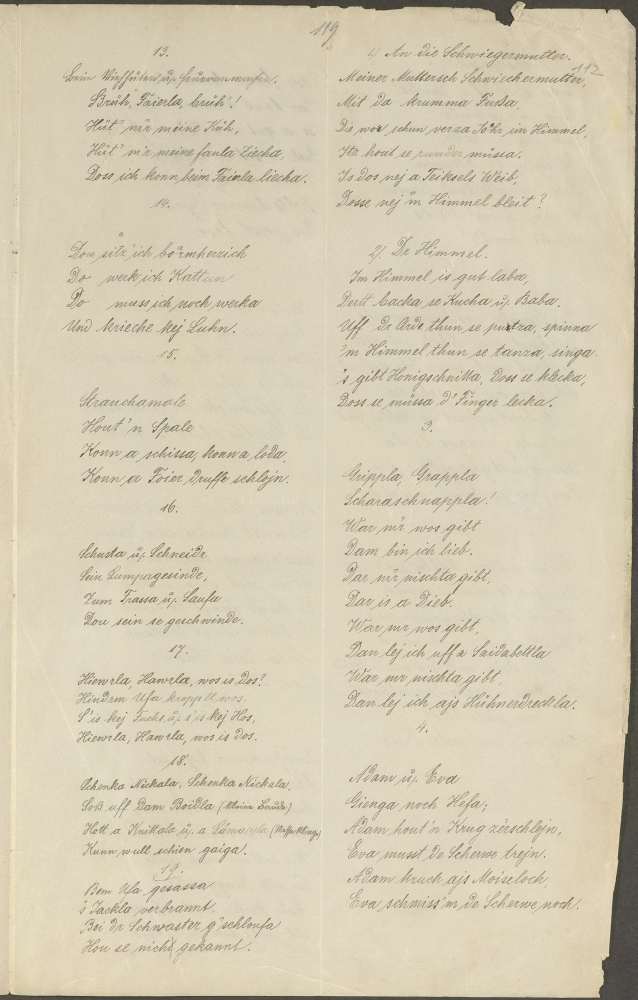 119
112
13.
Beim Viehhüten u. Feueranmachen.
Brüh', Faierla, brüh'!
Hüt' m'r meine Küh,
Hüt' m'r meine faula Liecha,
Doss ich konn beim Faierla liecha.
14.
Dou sitz' ich bo'rmherzich
Do werk ich Kattun
Do muss ich noch werka
Und krieche kej Luhn.
15.
Strauchamole
Hout 'n Spale
Konn a schissa, konn a loda,
Konn a Foier druffe schlojn.
16.
Schusta u. Schneidr
Sein Lumpagesinde,
Zum Frassa u. Saufa
Dou sein se geschwinde.
17.
Hiewrla, Hawrla, wos is dos?
Hindrm Ufa kroppelt wos.
S'is kej Fuchs u. s'is kej Hos,
Hiewrla, Hawrla, wos is dos.
18.
Schenka Nickala, Schenka Nickala
Soß uff dam Boidla (kleine Baude)
Hott a Knittala u. a
Kunn wull schien gaiga.
19.
Bem Ufa gesassa
's Jackla verbrannt
Bei dr Schwaster g'schloufa
Hou se nicht gekannt.
1) An die Schwiegermutter.
Meiner Muttersch Schwieckermutter,
Mit da krumma Fussa,
Die wor schun verza Johr im Himmel,
Itz hout se rundor müssa.
Is dos nej a Teiksels Weib,
Dosse nej 'm Himmel bleit?
2). Dr Himmel.
Im Himmel is gut laba,
Dertt backa se Kucha u. Baba.
Uff dr Arde thun se putza, spinna
'm Himmel thun se tanza, singa.
's gibt Honigschnitta, doss se klecka,
Doss se müssa d' Finger lecka.
3.
Grippla, Grappla
Scharaschnappla!
War m'r wos gibt
Dam bin ich lieb.
Dar m'r nischta gibt,
Dar is a Dieb.
War mr wos gibt,
Dan lej ich uff a Saidabettla
War mr nischta gibt,
Dan lej ich ajs Hühnerdreckla.
4.
Adam u. Eva
Gienga noch Hefa;
Adam hout 'n Krug zerschlojn,
Eva musst de Scherwe trejn.
Adam kruch ajs Moiseloch
Eva schmiss'm de Scherwe noch.